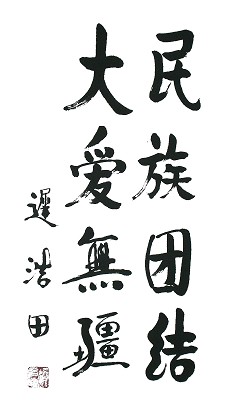 民族团结
大爱無疆
遲浩田